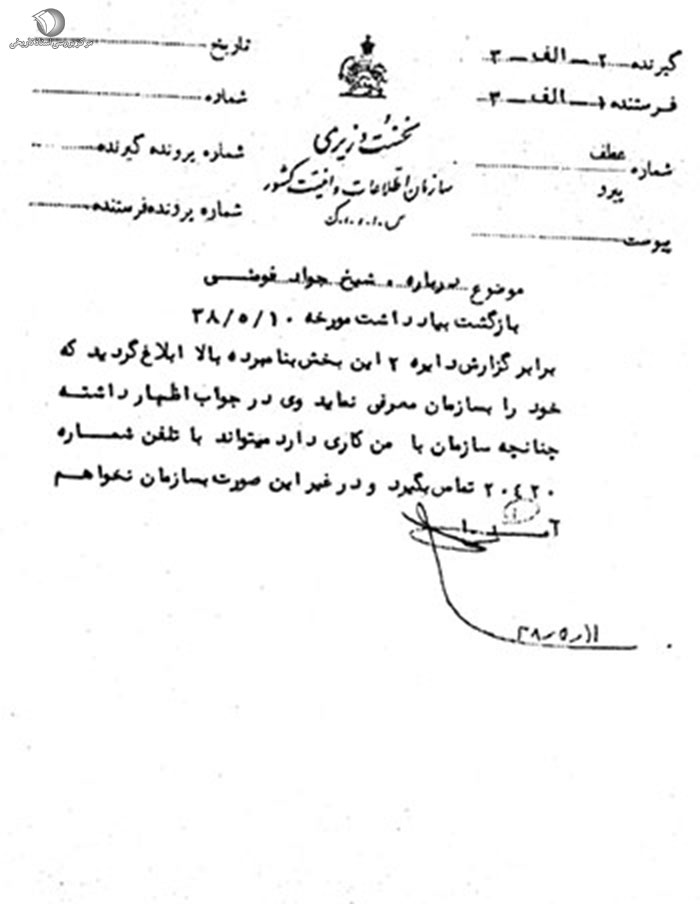 مرکز بررسی اسناد تاریخی
گیرنده ۲ ــ الف ــ ۳
فرستنده ۱ ــ الف ــ ۳
شماره عطف
پیرو
پیوست
نخست وزیری
سازمان اطلاعات و امنیت کشور
س.ا.و.ا.ک
تاریخ
شماره
شماره پرونده گیرنده
شماره پرونده فرستنده
موضوع درباره ، شیخ جواد فومنی
بازگشت بیاد داشت مورخه ۳۸/۵/۱۰
برابر گزارش دایره ۲ این بخش بنامبرده بالا ابلاغ گردید که
خود را بسازمان معرفی نماید وی در جواب اظهار داشته
چنانچه سازمان با من کاری دارد میتواند با تلفن شماره
۲۰٤۲۰ تماس بگیرد و در غیر این صورت بسازمان نخواهم
آمد
۳۸٫۵٫۱۱